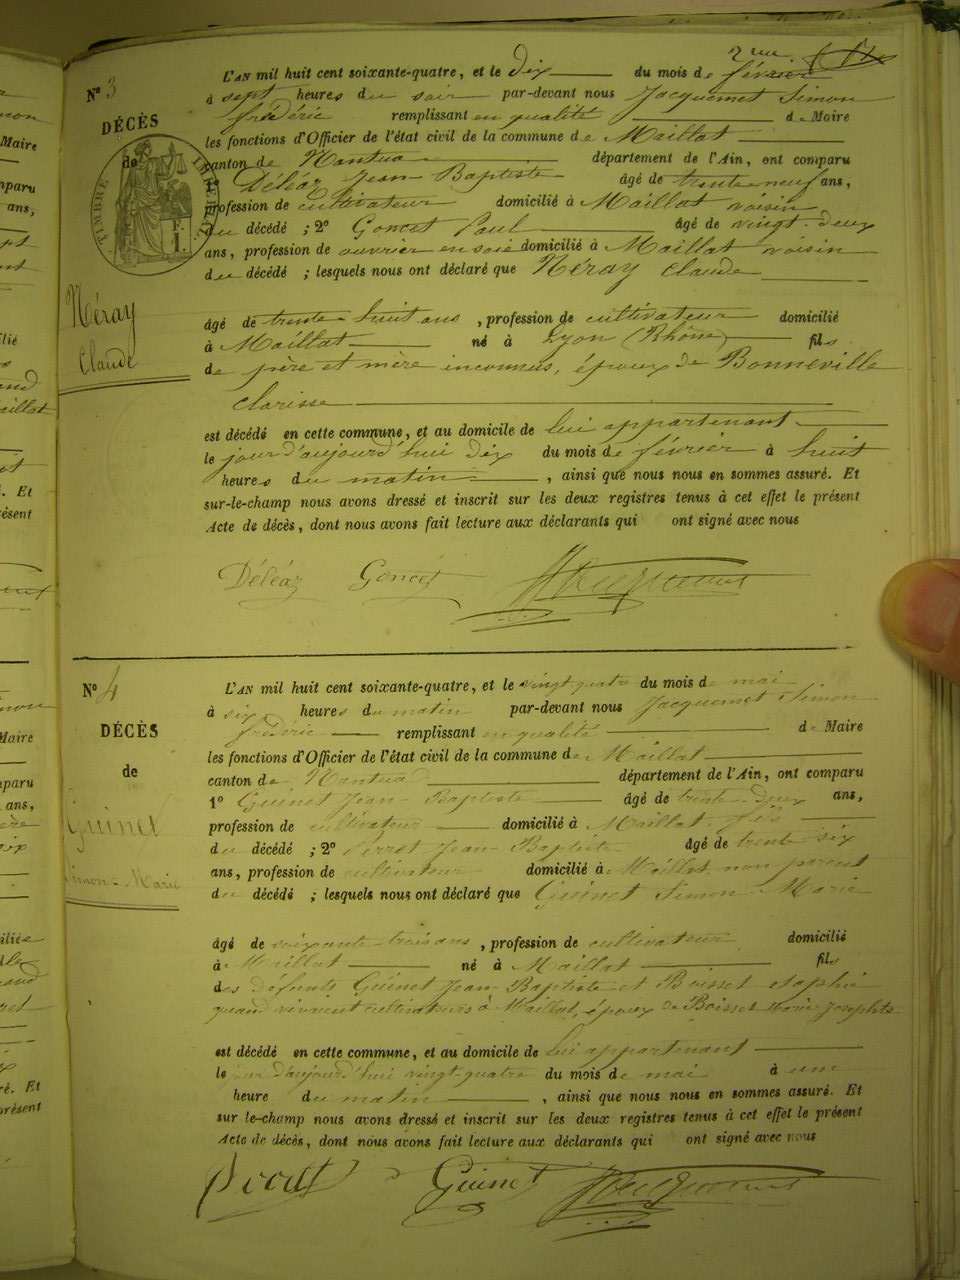 L'AN mil huit cent soixante-quatre, et le dix du mois de février
N° 3
à sept heures du soir par-devant nous Jacquemet Simon
frédéric remplissant en qualité de Maire
DÉCÈS
les fonctions d'Officier de l'état civil de la commune de Maillat
de
canton de Nantua département de l'Ain, ont comparu
1° Déléaz Jean-Baptiste âgé de trente-neuf ans,
profession de cultivateur domicilié à Maillat voisin
TIMBRE IMPÉRIAL
du décédé ; 2° Goncet Paul âgé de vingt-deux
ans, profession de ouvrier en soie domicilié à Maillat voisin
du décédé ; lesquels nous ont déclaré que Néray Claude
Néray
Claude
âgé de trente-huit ans, profession de cultivateur domicilié
à Maillat né à Lyon (Rhône) fils
de père et mère inconnus, époux de Bonneville
Clarisse
est décédé en cette commune, et au domicile de lui appartenant
le jour d'aujourd'hui dix du mois de février à huit
heures du matin, ainsi que nous nous en sommes assuré. Et
sur-le-champ nous avons dressé et inscrit sur les deux registres tenus à cet effet le présent
Acte de décès, dont nous avons fait lecture aux déclarants qui ont signé avec nous
Déléaz Goncet Jacquemet
N° 4
L'AN mil huit cent soixante-quatre, et le vingt-quatre du mois de mai
à six heures du matin par-devant nous Jacquemet Simon
frédéric remplissant en qualité de Maire
DÉCÈS
les fonctions d'Officier de l'état civil de la commune de Maillat
de
canton de Nantua département de l'Ain, ont comparu
1° Guinet Jean-Baptiste âgé de trente-deux ans,
Guinet
profession de cultivateur domicilié à Maillat fils
du décédé ; 2° Perret Jean-Baptiste âgé de trente six
ans, profession de cultivateur domicilié à Maillat non parent
Simon-Marie
du décédé ; lesquels nous ont déclaré que Guinet Simon-Marie
âgé de soixante-trois ans, profession de cultivateur domicilié
à Maillat né à Maillat fils
des défunts Guinet Jean-Baptiste et Boisset
quand vivaient cultivateurs à Maillat, époux de Boisset Marie Josephte
est décédé en cette commune, et au domicile de lui appartenant
le jour d'aujourd'hui vingt-quatre du mois de mai à une
heure du matin, ainsi que nous nous en sommes assuré. Et
sur le-champ nous avons dressé et inscrit sur les deux registres tenus à cet effet le présent
Acte de décès, dont nous avons fait lecture aux déclarants qui ont signé avec nous
Perret Guinet Jacquemet